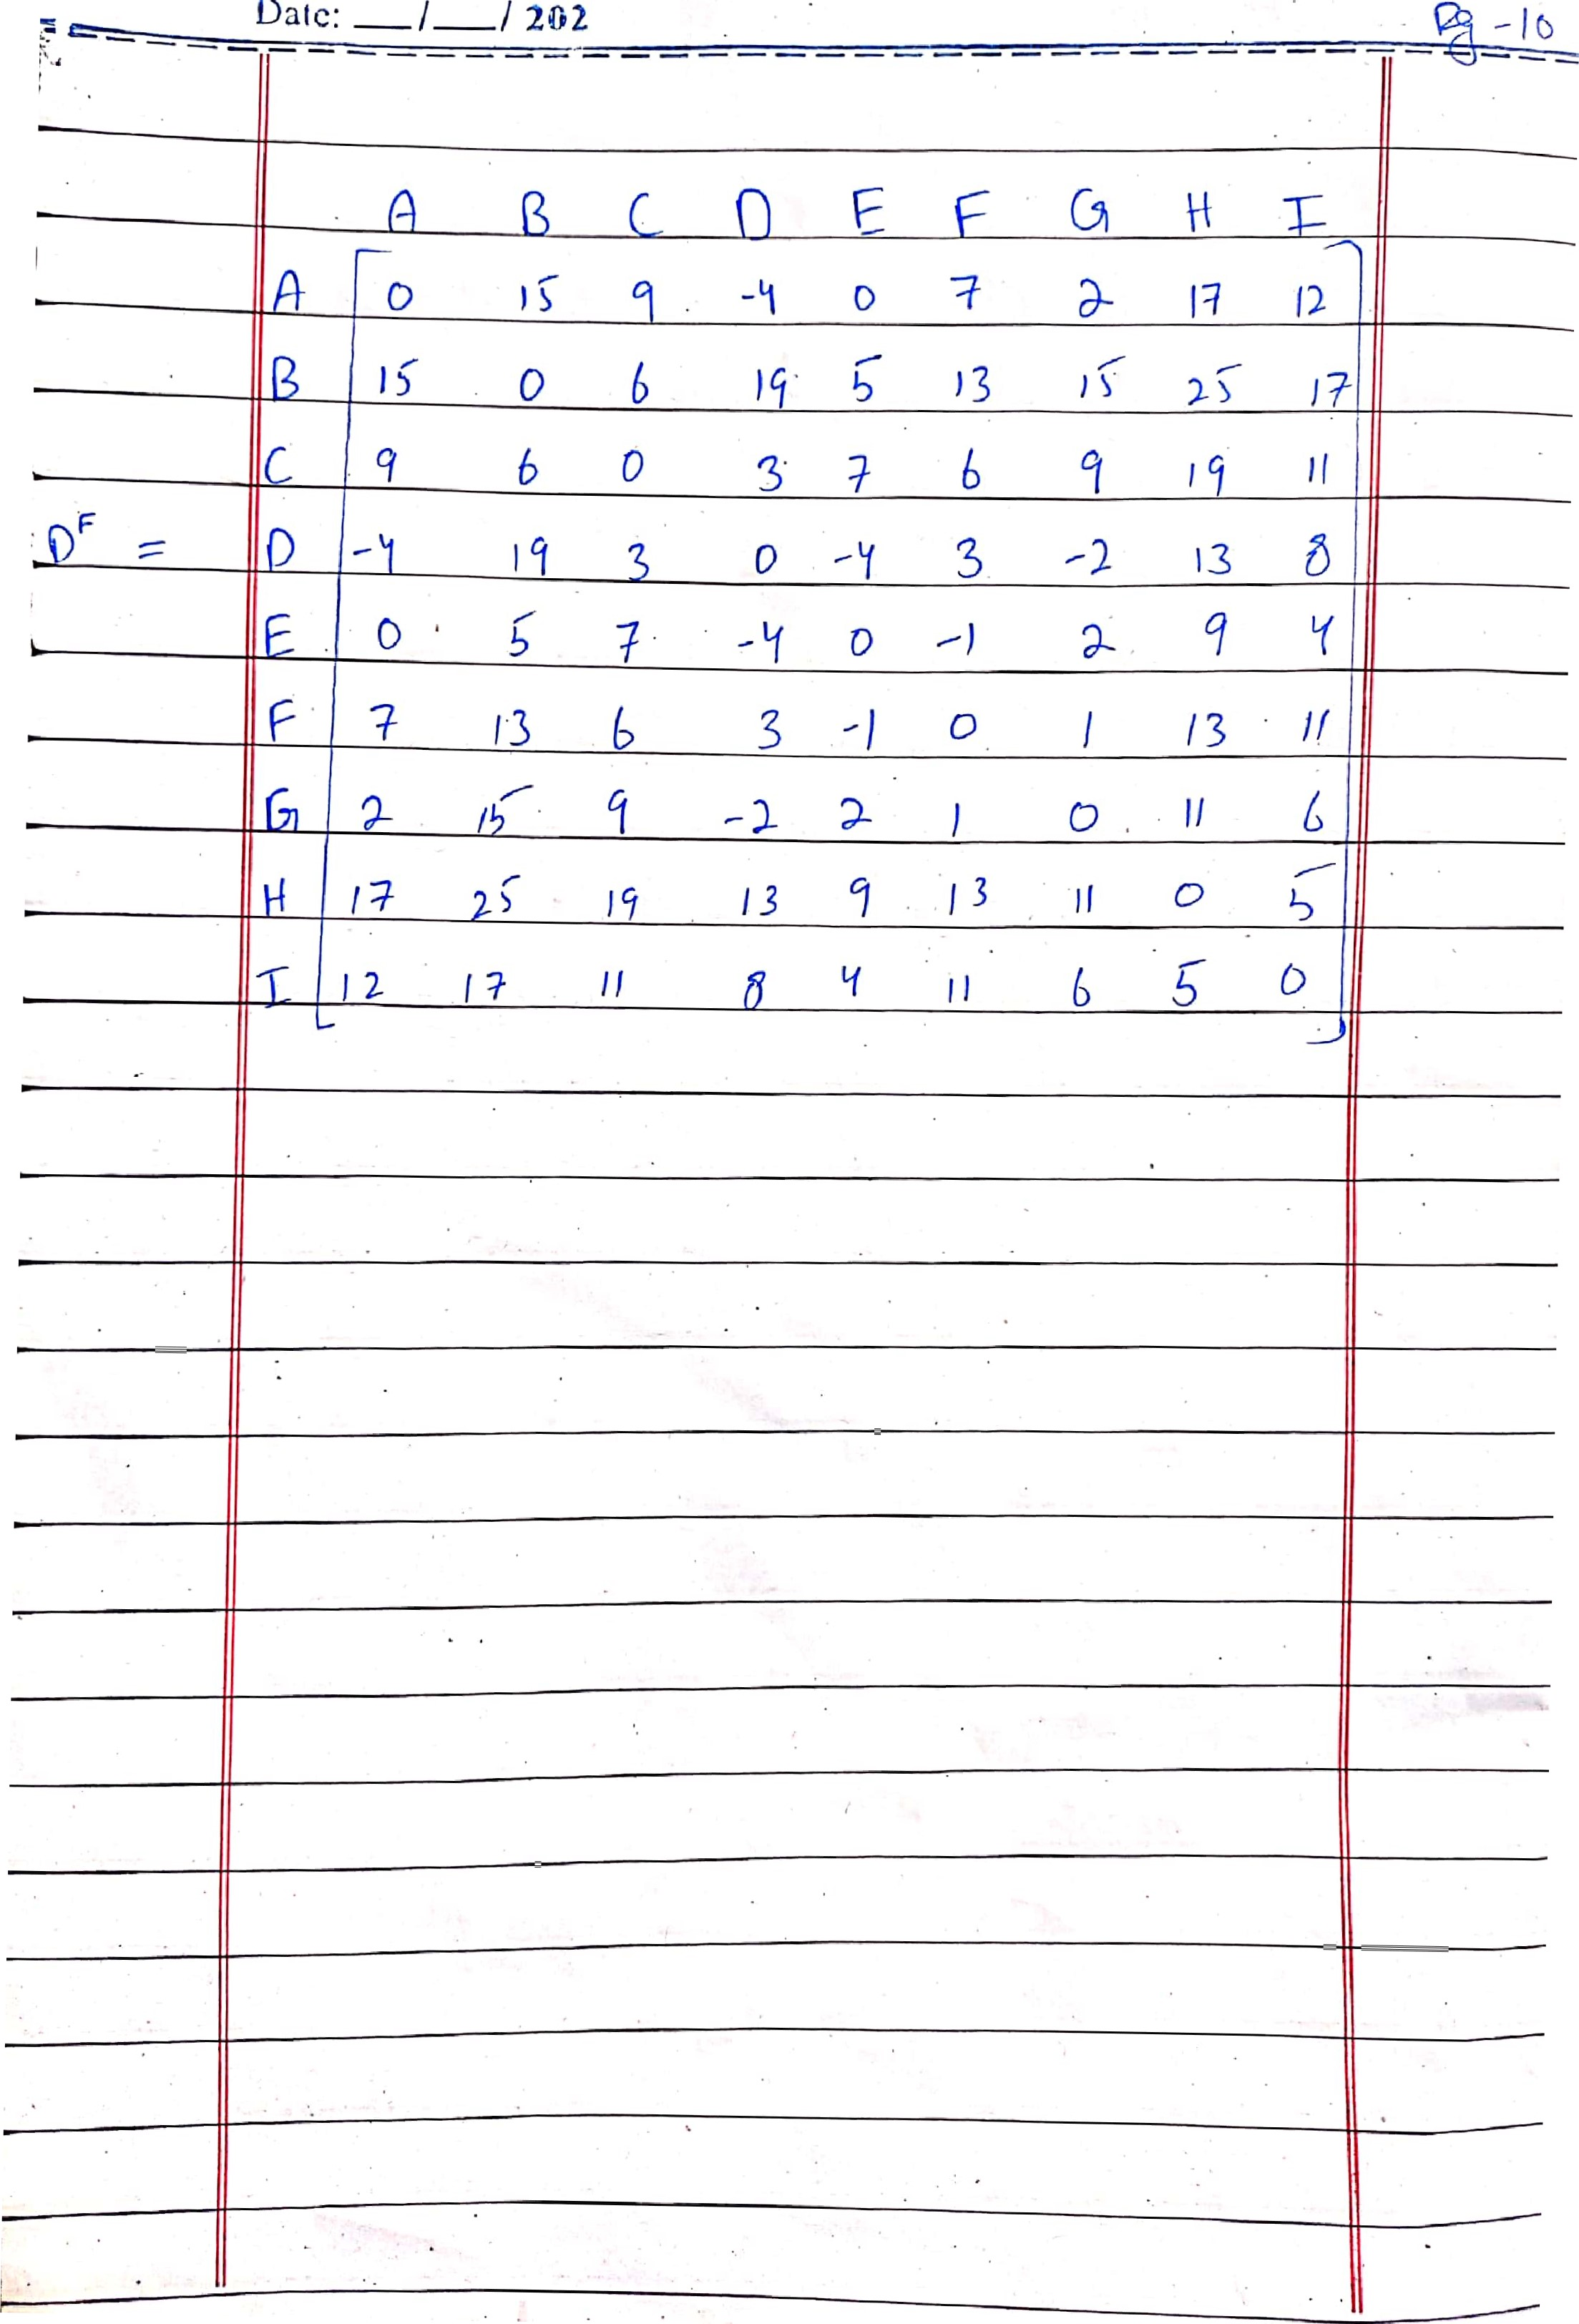 Date: __/__/ 202
Pg - 10
A B C D E F G H I
A 0 15 9 -4 0 7 2 17 12
B 15 0 6 19 5 13 15 25 17
C 9 6 0 3 7 6 9 19 11
D^F = D -4 19 3 0 -4 3 -2 13 8
E 0 5 7 -4 0 -1 2 9 4
F 7 13 6 3 -1 0 1 13 11
G 2 15 9 -2 2 1 0 11 6
H 17 25 19 13 9 13 11 0 5
I 12 17 11 8 4 11 6 5 0